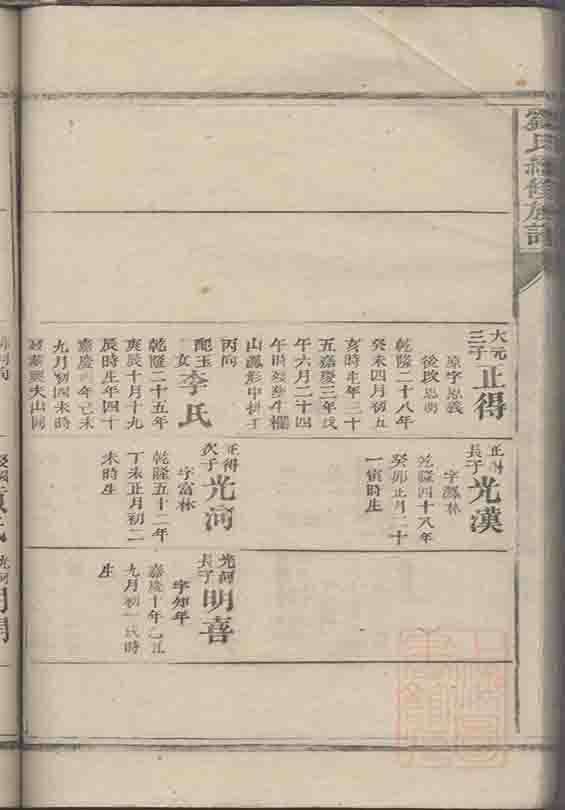 劉氏續修族譜
大元
三子
正得
原字思義
後改思明
乾隆二十八年
癸未四月初五
亥時生年三十
五嘉慶三年戊
午六月二十四
午時
山鳳形中
丙向
配玉
女
李氏
乾隆二十五年
庚辰十月十九
辰時生年四十
嘉慶四年己未
九月初四未時
大山同
正得
長子
光漢
字鳳林
乾隆四十八年
癸卯正月二十
一寅時生
正得
次子
光河
字富林
乾隆五十二年
丁未正月初二
未時生
光河
長子
明喜
字知年
嘉慶十年乙丑
九月初一戌時
生